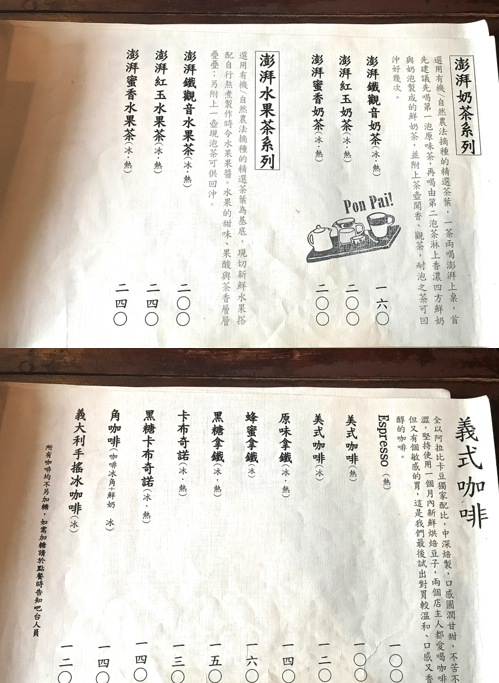 澎湃奶茶系列
選用有機/自然農法摘種的精選茶葉，一茶兩喝澎湃上桌，首
先建議先喝第一泡原味茶，再喝由第二泡茶淋上香濃四方鮮奶
與奶泡製成的鮮奶茶，並附上茶壺聞香、觀茶，耐泡之茶可回
沖好幾次。
澎湃鐵觀音奶茶(冰,熱) 一六〇
澎湃紅玉奶茶(冰,熱) 二〇〇
澎湃蜜香奶茶(冰,熱) 二〇〇
Pon Pai!
澎湃水果茶系列
選用有機/自然農法摘種的精選茶葉為基底，現切新鮮水果搭
配自行熬煮製作時令水果果醬。水果的甜味、果酸與茶香層層
疊疊；另附上一壺現泡茶可供回沖。
澎湃鐵觀音水果茶(冰,熱) 二〇〇
澎湃紅玉水果茶(冰,熱) 二四〇
澎湃蜜香水果茶(冰,熱) 二四〇
義式咖啡
全以阿拉比卡豆獨家配比，中深焙製，口感圓潤甘甜，不苦不
澀，堅持使用一個月內新鮮烘焙豆子，兩個店主人都愛喝咖啡
但又有個敏感的胃，這是我們最後試出對胃較溫和、口感又香
醇的咖啡。
Espresso(熱) 一〇〇
美式咖啡(熱) 一〇〇
美式咖啡(冰) 一二〇
原味拿鐵(冰,熱) 一四〇
蜂蜜拿鐵(冰) 一六〇
黑糖拿鐵(冰,熱) 一五〇
卡布奇諾(冰,熱) 一三〇
黑糖卡布奇諾(冰,熱) 一四〇
角咖啡(咖啡冰角+鮮奶 冰) 一四〇
義大利手搖冰咖啡(冰) 一二〇
所有咖啡均不另加糖，如需加糖請於點餐時告知吧台人員